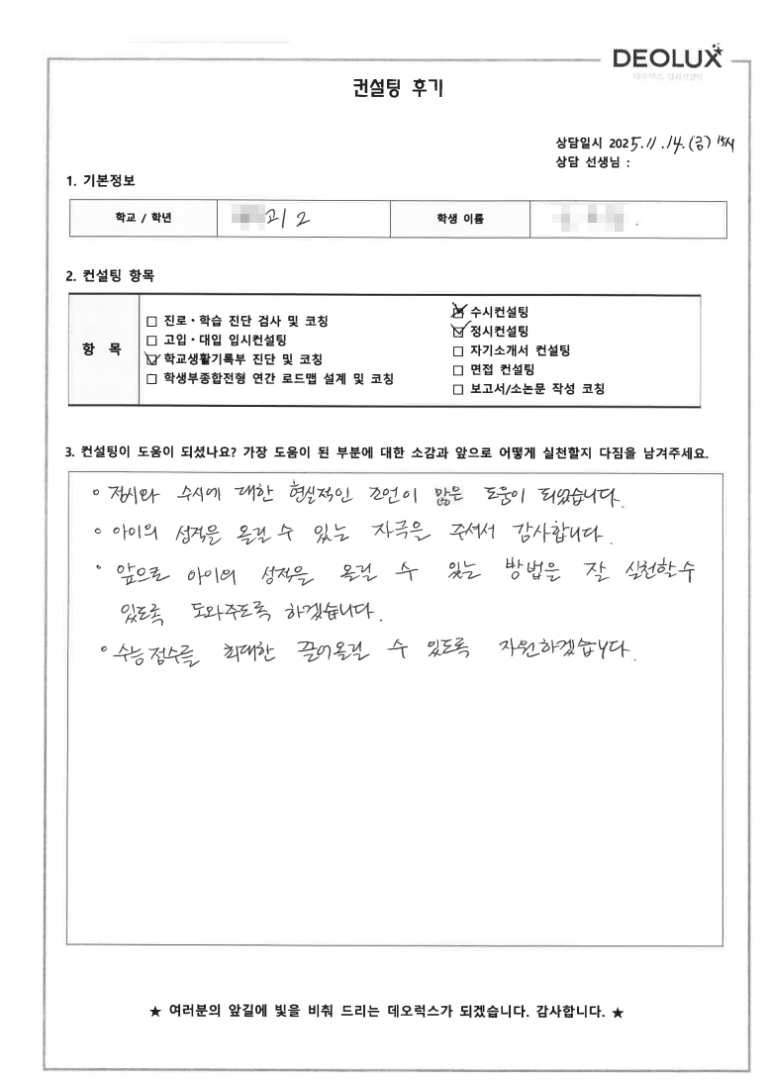 DEOLUX
데오럭스 입시컨설팅
컨설팅 후기
상담일시 2025.11.14.(금) 15시
상담 선생님 :
1. 기본정보
학교 / 학년 고 2 학생 이름
2. 컨설팅 항목
항 목
□ 진로·학습 진단 검사 및 코칭
□ 고입·대입 입시컨설팅
☑ 학교생활기록부 진단 및 코칭
□ 학생부종합전형 연간 로드맵 설계 및 코칭
☑ 수시컨설팅
☑ 정시컨설팅
□ 자기소개서 컨설팅
□ 면접 컨설팅
□ 보고서/소논문 작성 코칭
3. 컨설팅이 도움이 되셨나요? 가장 도움이 된 부분에 대한 소감과 앞으로 어떻게 실천할지 다짐을 남겨주세요.
◦ 정시와 수시에 대한 현실적인 조언이 많은 도움이 되었습니다.
◦ 아이의 성적을 올릴 수 있는 자극을 주셔서 감사합니다.
◦ 앞으로 아이의 성적을 올릴 수 있는 방법을 잘 실천할수
있도록 도와주도록 하겠습니다.
◦ 수능점수를 최대한 끌어올릴 수 있도록 지원하겠습니다.
★ 여러분의 앞길에 빛을 비춰 드리는 데오럭스가 되겠습니다. 감사합니다. ★